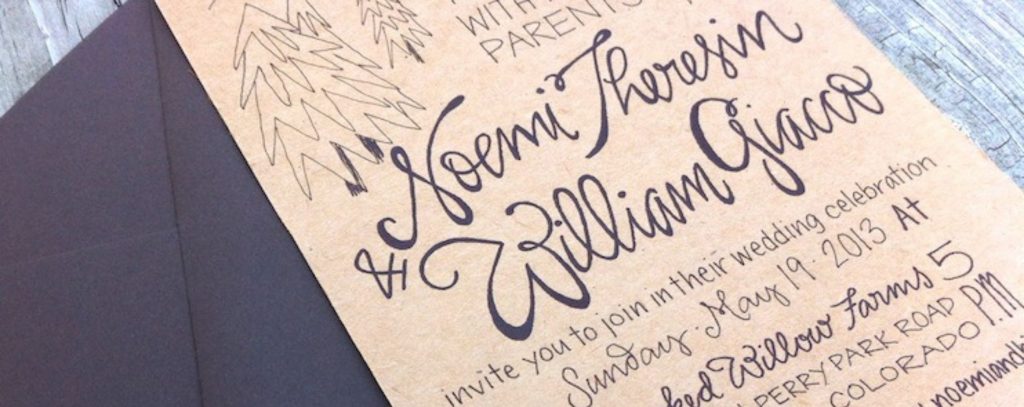 WITH
PARENTS
Noemi Theresin
& William Gjacco
invite you to join in their wedding celebration
Sunday · May 19 · 2013 At
Willow Farms 5
PERRY PARK ROAD P.M
COLORADO